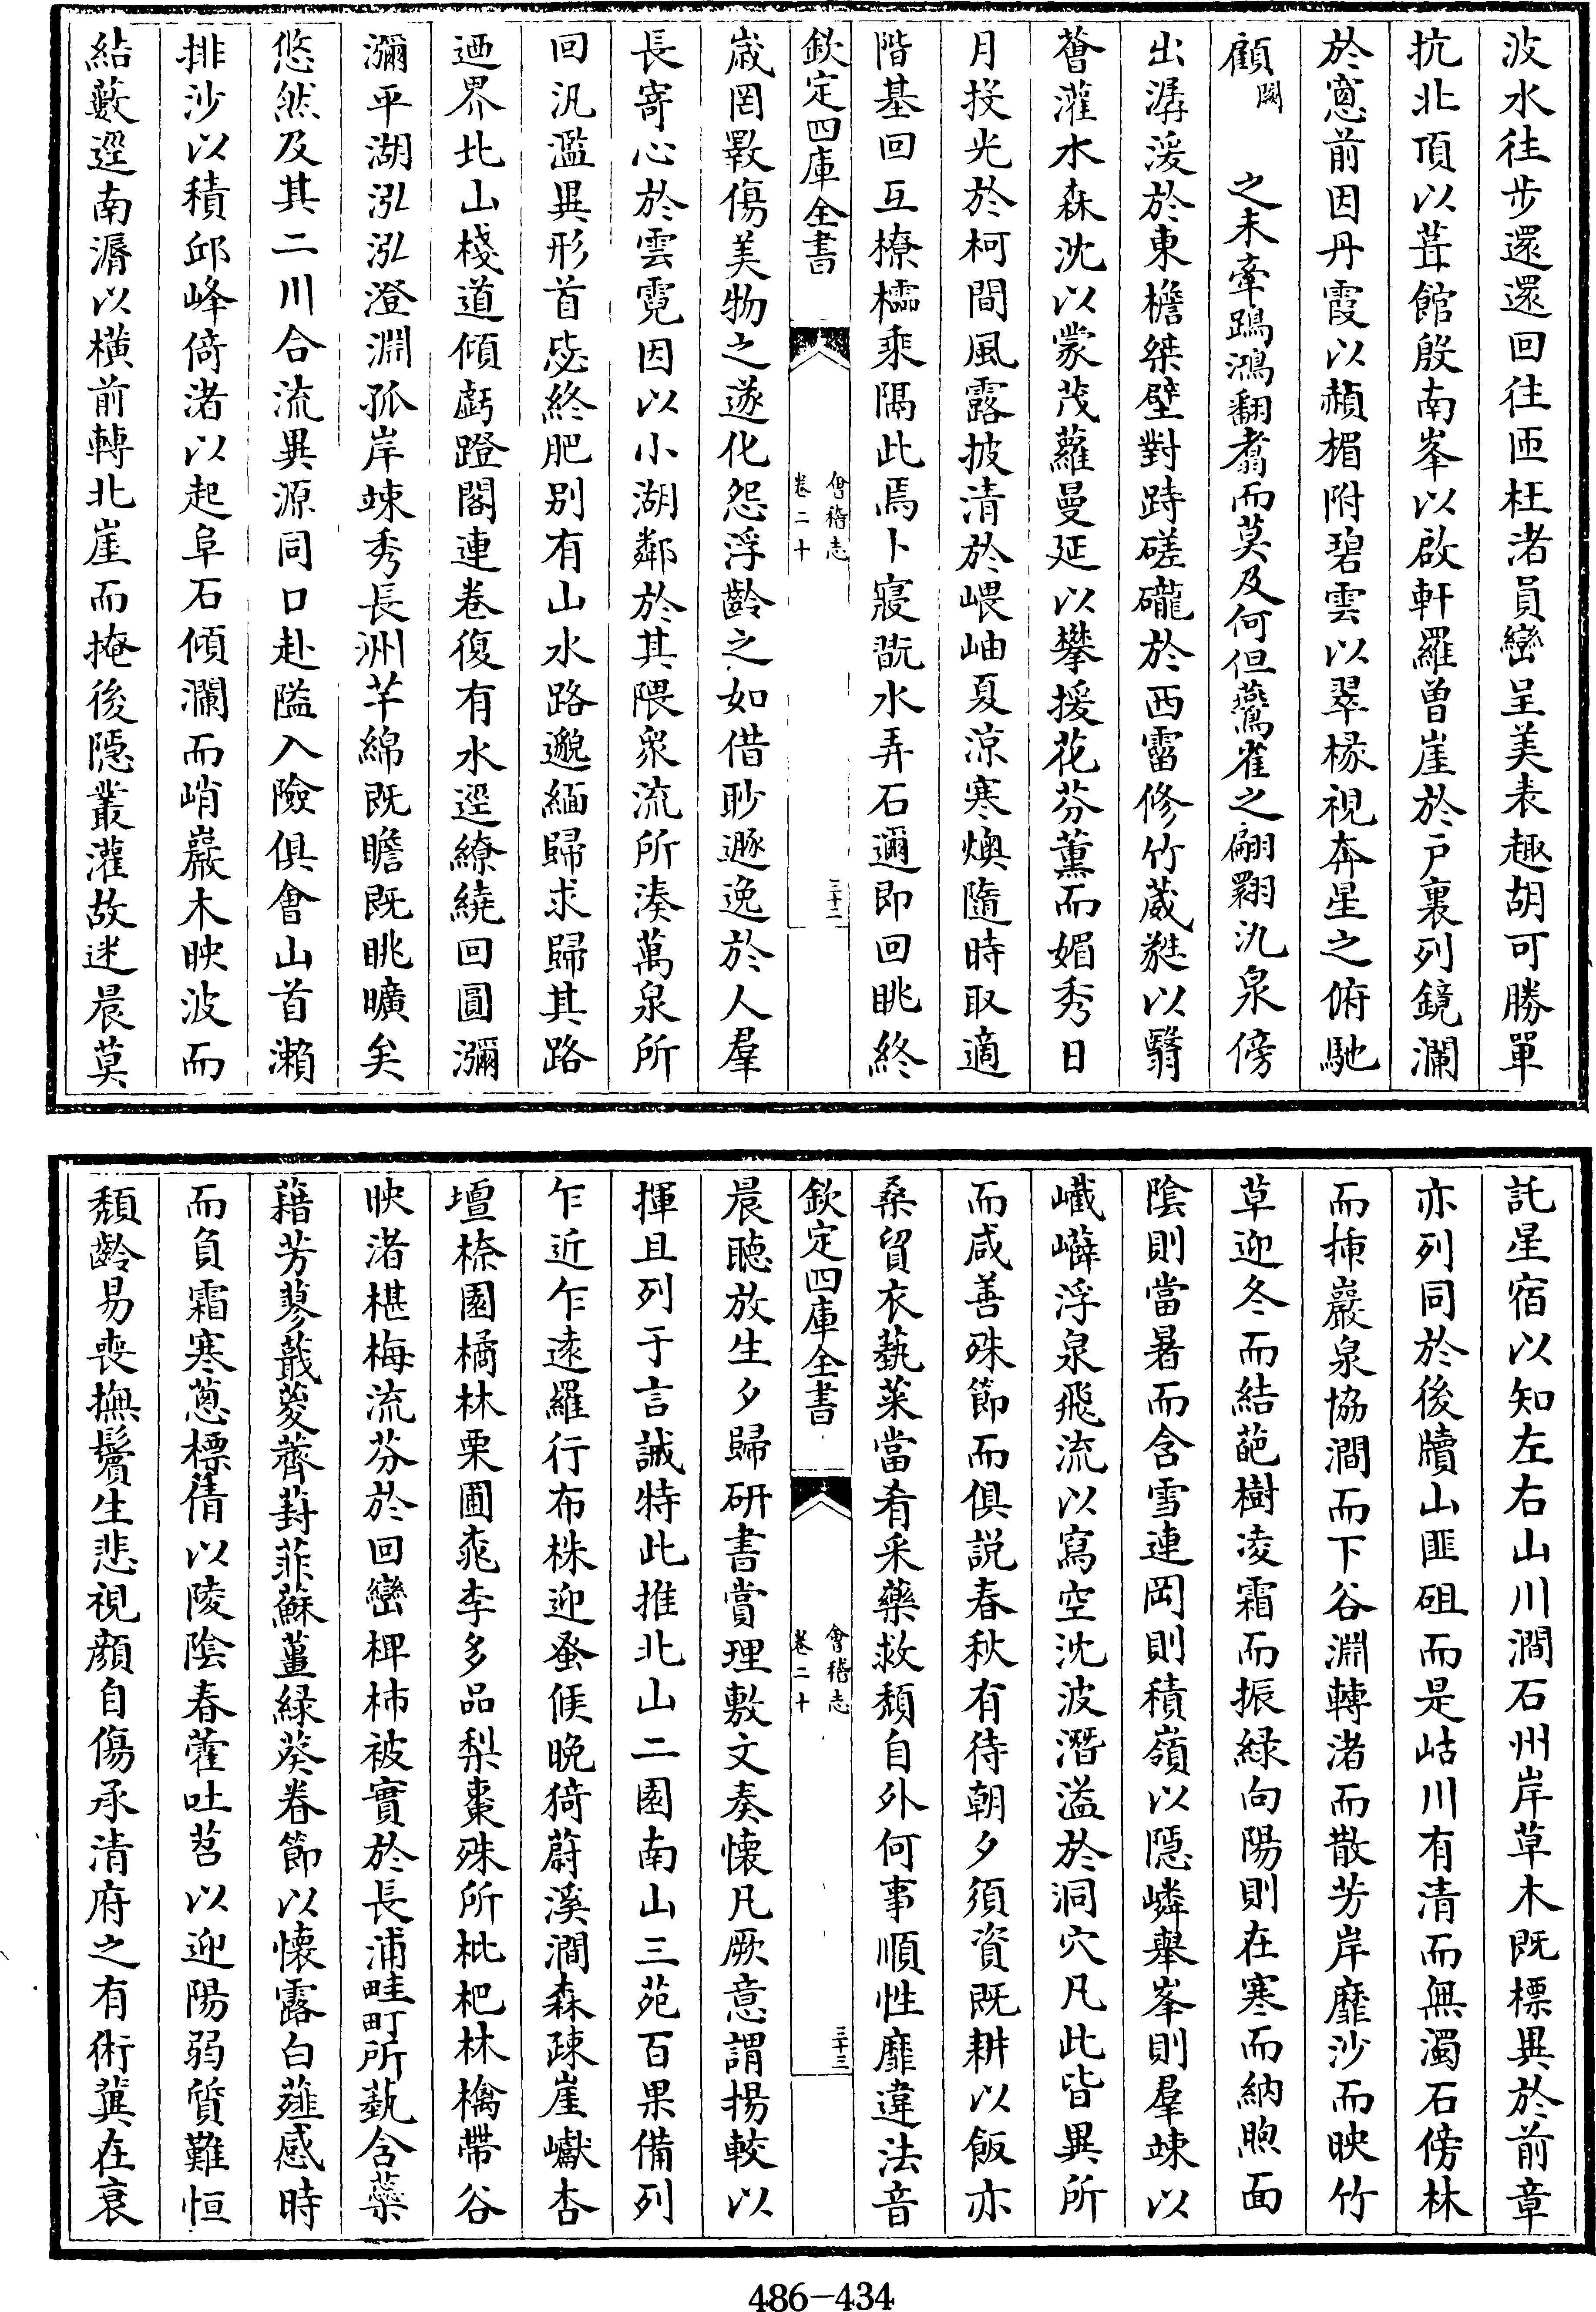 波水往步還還回往匝枉渚員巒呈美表趣胡可勝單
抗北頂以葺館殷南峯以啟軒羅曾崖於戸裏列鏡瀾
於窻前因丹霞以赬楣附碧雲以翠椽視奔星之俯馳
顧闕之未牽鵾鴻翻翥而莫及何但鷰雀之翩翾氿泉傍
出潺湲於東檐桀壁對跱硿礲於西霤修竹葳蕤以翳
薈灌水森沈以蒙茂蘿曼延以攀援花芬薫而媚秀日
月投光於柯間風露披清於嵔岫夏涼寒燠隨時取適
階基回互橑櫺乘隔此焉卜寢翫水弄石邇即回眺終
欽定四庫全書
會稽志
卷二十
三十二
歲罔斁傷美物之遂化怨浮齡之如借眇遯逸於人羣
長寄心於雲霓因以小湖鄰於其隈衆流所湊萬泉所
回汎濫異形首毖終肥别有山水路邈緬歸求歸其路
迺界北山棧道傾虧蹬閣連卷復有水逕繚繞回圓瀰
瀰平湖泓泓澄淵孤岸竦秀長洲芊綿既瞻既眺曠矣
悠然及其二川合流異源同口赴隘入險俱會山首瀨
排沙以積邱峰倚渚以起阜石傾瀾而峭巖木映波而
結藪逕南漘以横前轉北崖而掩後隠叢灌故迷晨莫
託星宿以知左右山川澗石州岸草木既標異於前章
亦列同於後牘山匪砠而是岵川有清而無濁石傍林
而揷巖泉協澗而下谷淵轉渚而散芳岸靡沙而映竹
草迎冬而結葩樹凌霜而振緑向陽則在寒而納煦面
隂則當暑而含雪連岡則積嶺以隠嶙舉峯則羣竦以
巀嶭浮泉飛流以寫空沈波潛溢於洞穴凡此皆異所
而咸善殊節而俱説春秋有待朝夕須資既耕以飯亦
桑貿衣蓺菜當肴采藥救頽自外何事順性靡違法音
欽定四庫全書
會稽志
卷二十
三十三
晨聽放生夕歸研書賞理敷文奏懐凡厥意謂揚較以
揮且列于言誠特此推北山二園南山三苑百果備列
乍近乍遠羅行布株迎蚤候晩猗蔚溪澗森疎崖巘杏
壇㮈園橘林栗圃桃李多品梨棗殊所枇杷林檎帶谷
映渚椹梅流芬於回巒椑柿被實於長浦畦町所蓺含蘂
藉芳蓼蕺葼薺葑菲蘇薑緑葵眷節以懐露白薤感時
而負霜寒蔥標蒨以陵隂春藿吐苕以迎陽弱質難恒
頽齡易喪撫鬢生悲視顔自傷承清府之有術冀在衰
486-434